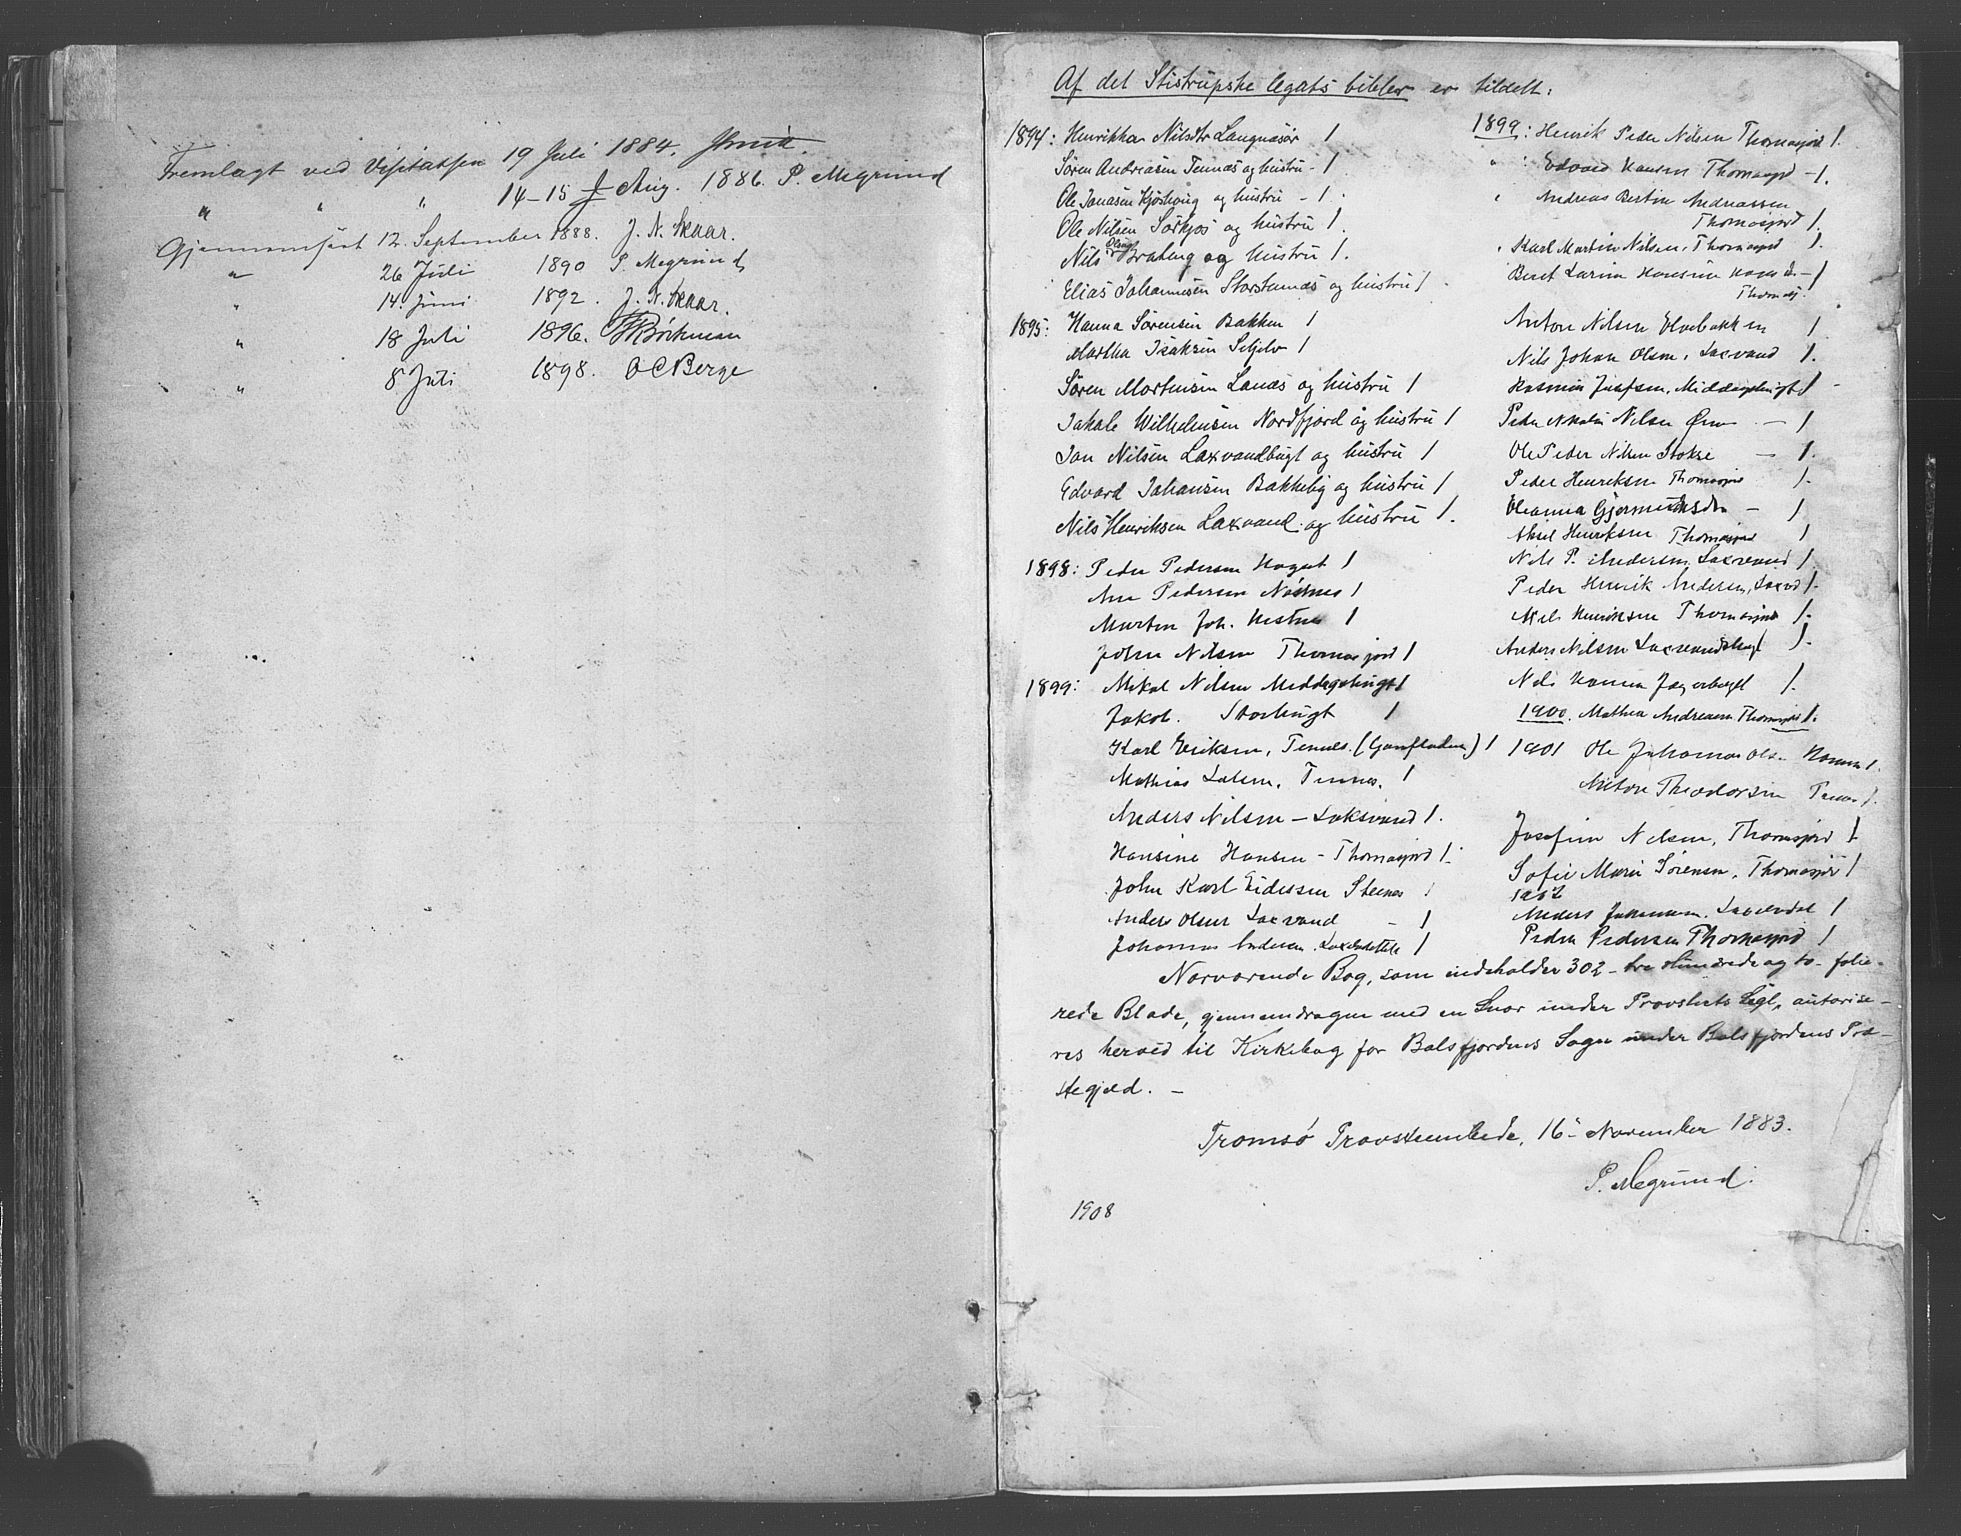 Fremlagt ved Visitatsen 19 Juli 1884. Smitt.
" " " 14–15 Aug. 1886. P. Megrund
Gjennemseet 12. September 1888. J. N. Skaar.
" 26 Juli 1890 P. Megrund
" 14. Juni 1892. J. N. Skaar.
" 18 Juli 1896. Böckman
" 8 Juli 1898. O C Berge
Af det Stistrupske legats bibler er tildelt:
1894: Henrikka Nilsdtr Langnæsør 1
Søren Andreasen Tennæs og hustru – 1
Ole Jonasen og hustru – 1.
Ole Nilsen Sørkjos og hustru 1.
Nils Olsen Bratleng og hustru 1.
Elias Johannesen Storstennæs og hustru 1
1895: Hanna Sørensen Bakken 1
Martha Isaksen Seljelv 1
Søren Mortensen Lanæs og hustru 1
Jakob Wilhelmsen Nordfjord og hustru 1
Jon Nilsen Laxvandbugt og hustru 1
Edvard Johansen Bakkeby og hustru 1
Nils Henriksen Laxvand og hustru 1.
1898: Peder Pedersen 1
Ane Pedersen 1
Morten Joh. 1
John Nilsen Thomasjord 1
1899: Mikal Nilsen Middagsbugt 1
Jakob. Storbugt 1
Karl Eriksen, Tennes. 1
Mathias Larsen, Tennes. 1
Anders Nilsen – Laksvand 1.
Hansine Hansen – Thomasjord 1.
John Karl Pedersen Stennes 1
Anders Olsen Laxvand – 1
Johannes Andersen, 1
1899: Henrik Peder Nilsen Thomasjord 1.
" : Edvard Hansen Thomasjord – 1.
" Andreas Bertin Andreassen
Thomasjord 1.
" Karl Martin Nilsen, Thomasjord 1.
Beret Larina Hansine – 1
Thomasj.
Anton Nilsen Elvebakken 1
Nils Johan Olsen, Laxvand 1.
Rasmus Josefsen, Middagsbugt 1 –
Peder Nikolai Nilsen – 1
Ole Peder Nilsen – 1.
Peder Henriksen Thomasjord 1.
Oleanna – 1
Aksel Henriksen Thomasjord 1
Nils P. Andersen, Laxvand 1.
Peder Henrik Andersen, Laxvd 1.
Nils Henriksen Thomasjord 1.
Anders Nilsen Laxvandsbugt 1.
Nils Hansen 1.
1900. Mathea Andreasen Thomasjord 1.
1901 Ole Johannes Olsen 1.
Anton Theodorsen 1.
Josefine Nilsen, Thomasjord 1
Sofie Marie Sørensen, Thomasjord 1
1902
Anders Johannesen, Laxelvdal 1
Peder Pedersen Thomasjord 1
Nærværende Bog, som indeholder 302 – tre Hundrede og to – folie-
rede Blade, gjennemdragen med en Snor under Provstiets Segl, autorise-
res herved til Kirkebog for Balsfjordens Sogn under Balsfjordens Præ-
stegjeld. –
Tromsø Provstembede, 16– November 1883.
P. Megrund.
1908